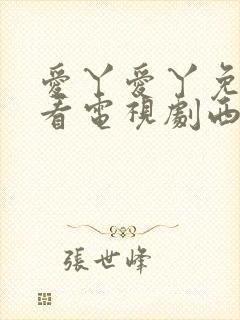 愛丫愛丫免
看電視劇西
張世峰